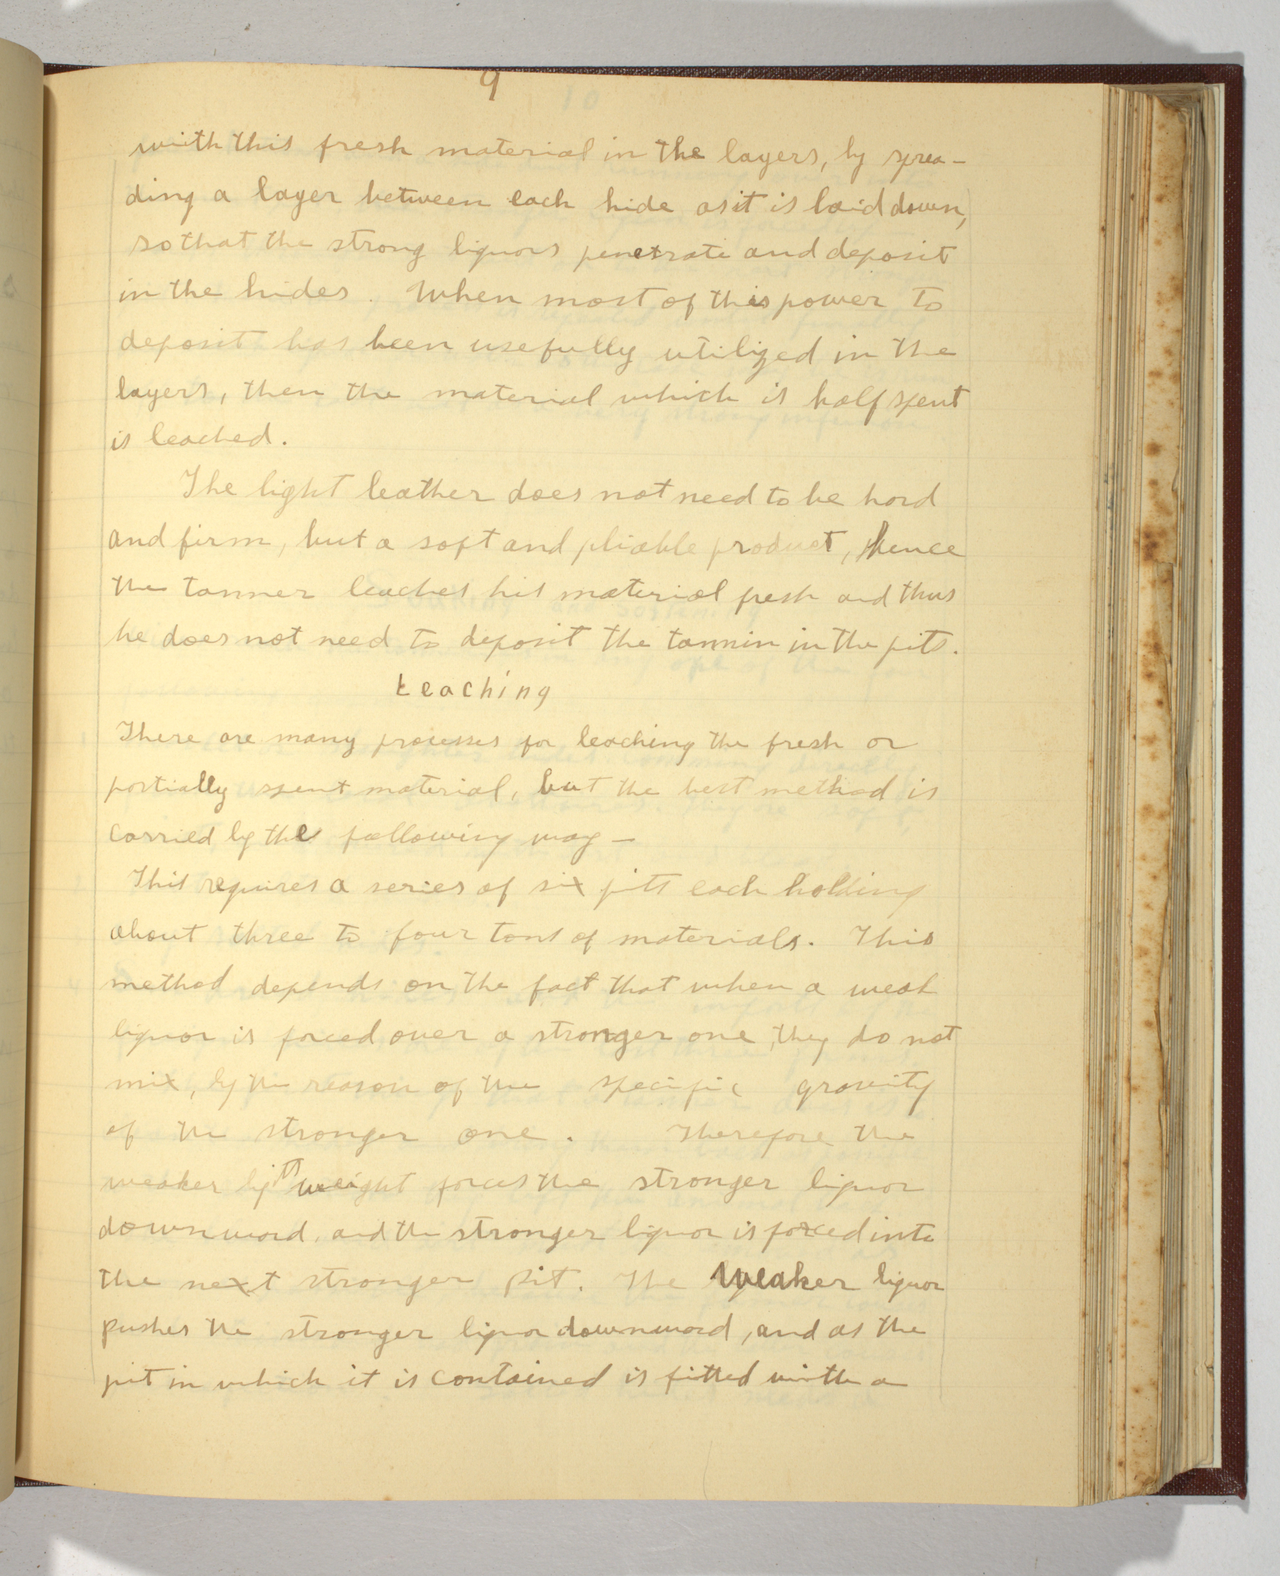 9
with this fresh material in the layers, by sprea-
ding a layer between each hide as it is laid down,
so that the strong liquors penetrate and deposit
in the hides. When most of this power to
deposit has been usefully utilized in the
layers, then the material which is half spent
is leached.
The light leather does not need to be hard
and firm, but a soft and pliable product, hence
the tanner leaches his material fresh and thus
he does not need to deposit the tannin in the pits.
Leaching
There are many processes for leaching the fresh or
partially spent material, but the best method is
carried by the following way —
This requires a series of six pits each holding
about three to four tons of materials. This
method depends on the fact that when a weak
liquor is forced over a stronger one, they do not
mix, by the reason of the specific gravity
of the stronger one. Therefore the
weaker by its weight forces the stronger liquor
downward, and the stronger liquor is forced into
the next stronger pit. The weaker liquor
pushes the stronger liquor downward, and as the
pit in which it is contained is fitted with a